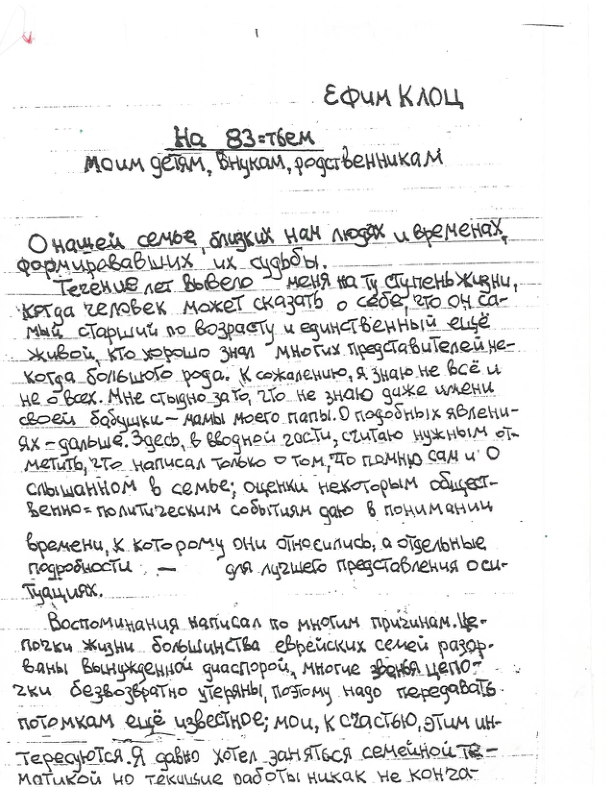 1
Ефим Клоц
На 83=тьем
моим детям, внукам, родственникам
О нашей семье, близких нам людях и временах,
формировавших их судьбы.
Течение лет вывело меня на ту ступень жизни,
когда человек может сказать о себе, что он са-
мый старший по возрасту и единственный ещё
живой, кто хорошо знал многих представителей не-
когда большого рода. К сожалению, я знаю не всё и
не о всех. Мне стыдно за то, что не знаю даже имени
своей бабушки – мамы моего папы. О подобных явлени-
ях – дальше. Здесь, в вводной части, считаю нужным от-
метить, что написал только о том, что помню сам и о
слышанном в семье; оценки некоторым общест-
венно=политическим событиям даю в понимании
времени, к которому они относились, а отдельные
подробности – для лучшего представления о си-
туациях.
Воспоминания написал по многим причинам. Це-
почки жизни большинства еврейских семей разор-
ваны вынужденной диаспорой, многие звенья цепо-
чки безвозвратно утеряны, поэтому надо передавать
потомкам ещё известное; мои, к счастью, этим ин-
тересуются. Я давно хотел заняться семейной те-
матикой но текущие работы никак не конча-